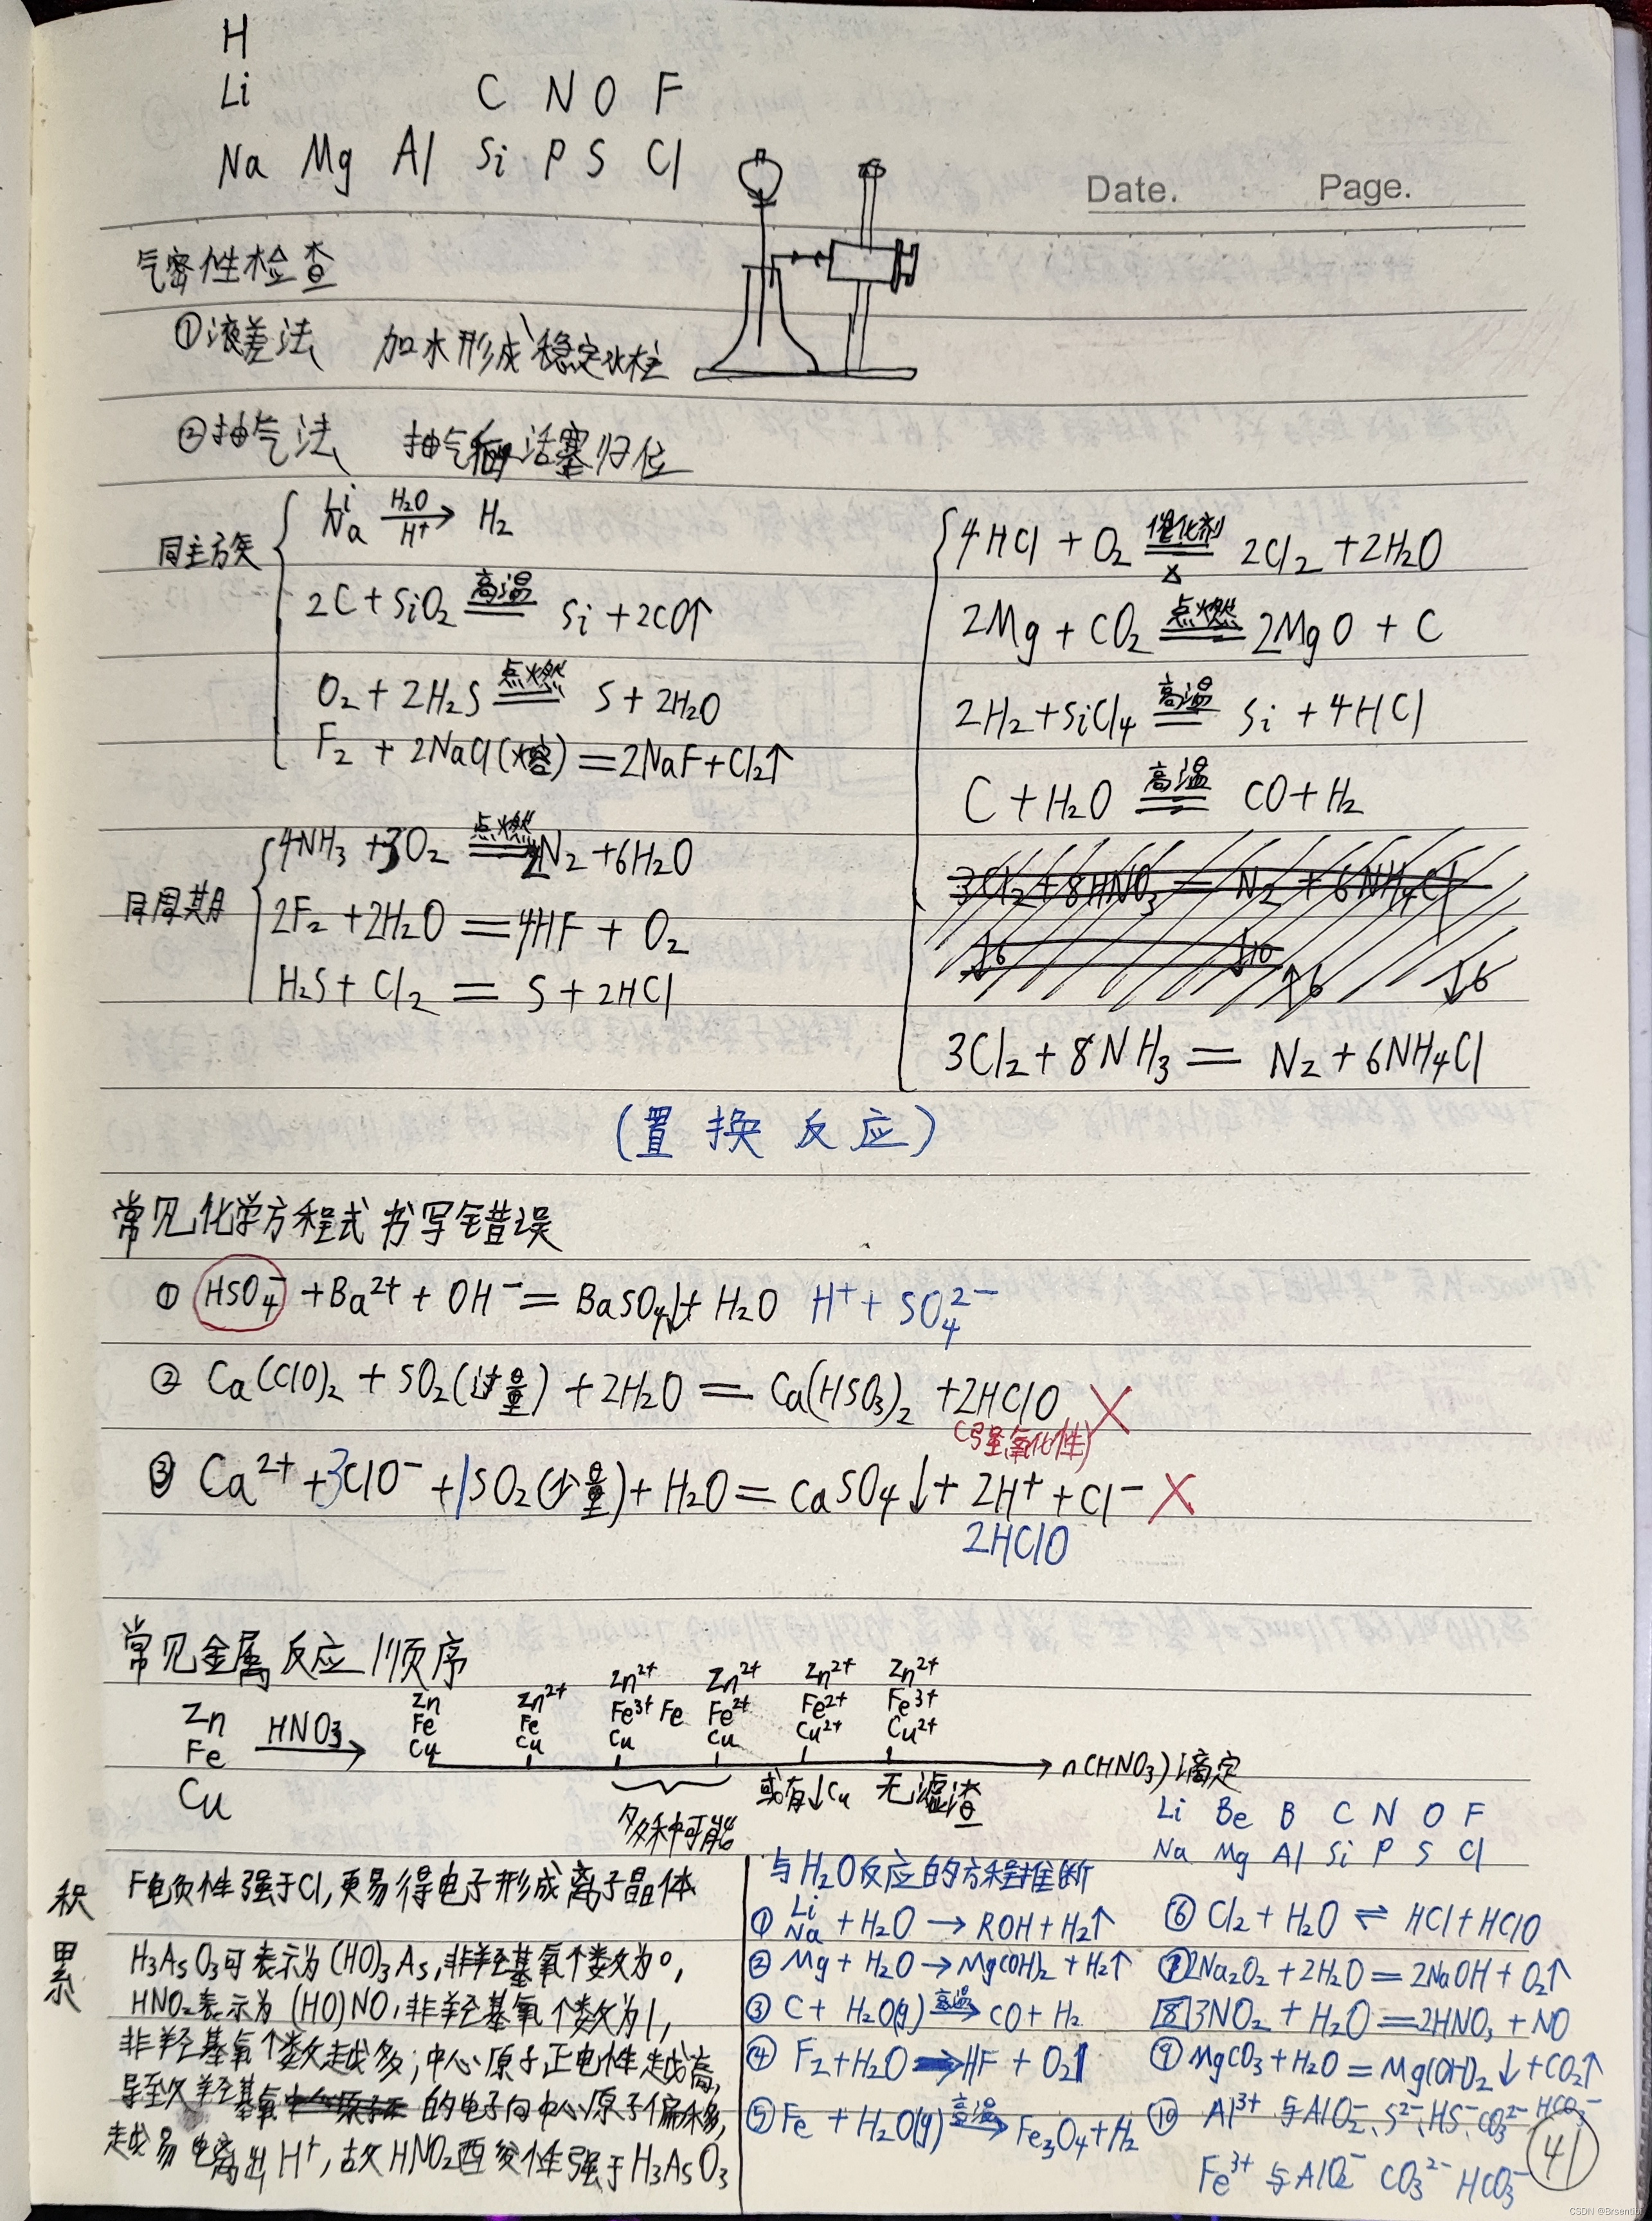 H
Li C N O F
Na Mg Al Si P S Cl
Date. Page.
气密性检查
①液差法 加水形成稳定水柱
②抽气法 抽气后活塞归位
同主族
Li
Na H₂O/H⁺→ H₂
2C + SiO₂ 高温═ Si + 2CO↑
O₂ + 2H₂S 点燃═ S + 2H₂O
F₂ + 2NaCl(熔) = 2NaF + Cl₂↑
同周期
4NH₃ + 3O₂ 点燃═ 2N₂ + 6H₂O
2F₂ + 2H₂O = 4HF + O₂
H₂S + Cl₂ = S + 2HCl
4HCl + O₂ 催化剂═△ 2Cl₂ + 2H₂O
2Mg + CO₂ 点燃═ 2MgO + C
2H₂ + SiCl₄ 高温═ Si + 4HCl
C + H₂O 高温═ CO + H₂
3Cl₂ + 8HNO₃ = N₂ + 6NH₄Cl
↓6 ↓10 ↑6 ↓6
3Cl₂ + 8NH₃ = N₂ + 6NH₄Cl
(置换反应)
常见化学方程式书写错误
① HSO₄⁻ + Ba²⁺ + OH⁻ = BaSO₄↓ + H₂O H⁺ + SO₄²⁻
② Ca(ClO)₂ + SO₂(过量) + 2H₂O = Ca(HSO₃)₂ + 2HClO ×
(强氧化性)
③ Ca²⁺ + 3ClO⁻ + 1SO₂(少量) + H₂O = CaSO₄↓ + 2H⁺ + Cl⁻ ×
2HClO
常见金属反应顺序
Zn
Fe HNO₃→
Cu
Zn Fe Cu
Zn²⁺ Fe Cu
Zn²⁺ Fe³⁺ Fe Cu
Zn²⁺ Fe²⁺ Cu
Zn²⁺ Fe²⁺ Cu²⁺
Zn²⁺ Fe³⁺ Cu²⁺
n(HNO₃)滴定
多种可能 或有↓Cu 无滤渣
Li Be B C N O F
Na Mg Al Si P S Cl
积累
F电负性强于Cl,更易得电子形成离子晶体
H₃AsO₃可表示为(HO)₃As,非羟基氧个数为0,
HNO₂表示为(HO)NO,非羟基氧个数为1,
非羟基氧个数越多;中心原子正电性越高,
导致羟基氧的电子向中心原子偏移多,
越易电离出H⁺,故HNO₂酸性强于H₃AsO₃
与H₂O反应的方程推断
① Li Na + H₂O → ROH + H₂↑
② Mg + H₂O → Mg(OH)₂ + H₂↑
③ C + H₂O(g) 高温→ CO + H₂
④ F₂ + H₂O → HF + O₂↑
⑤ Fe + H₂O(g) 高温→ Fe₃O₄ + H₂
⑥ Cl₂ + H₂O ⇌ HCl + HClO
⑦ 2Na₂O₂ + 2H₂O = 2NaOH + O₂↑
8 3NO₂ + H₂O = 2HNO₃ + NO
⑨ MgCO₃ + H₂O = Mg(OH)₂↓ + CO₂↑
⑩ Al³⁺与AlO₂⁻、S²⁻、HS⁻、CO₃²⁻ HCO₃⁻
Fe³⁺与AlO₂⁻ CO₃²⁻ HCO₃⁻
41